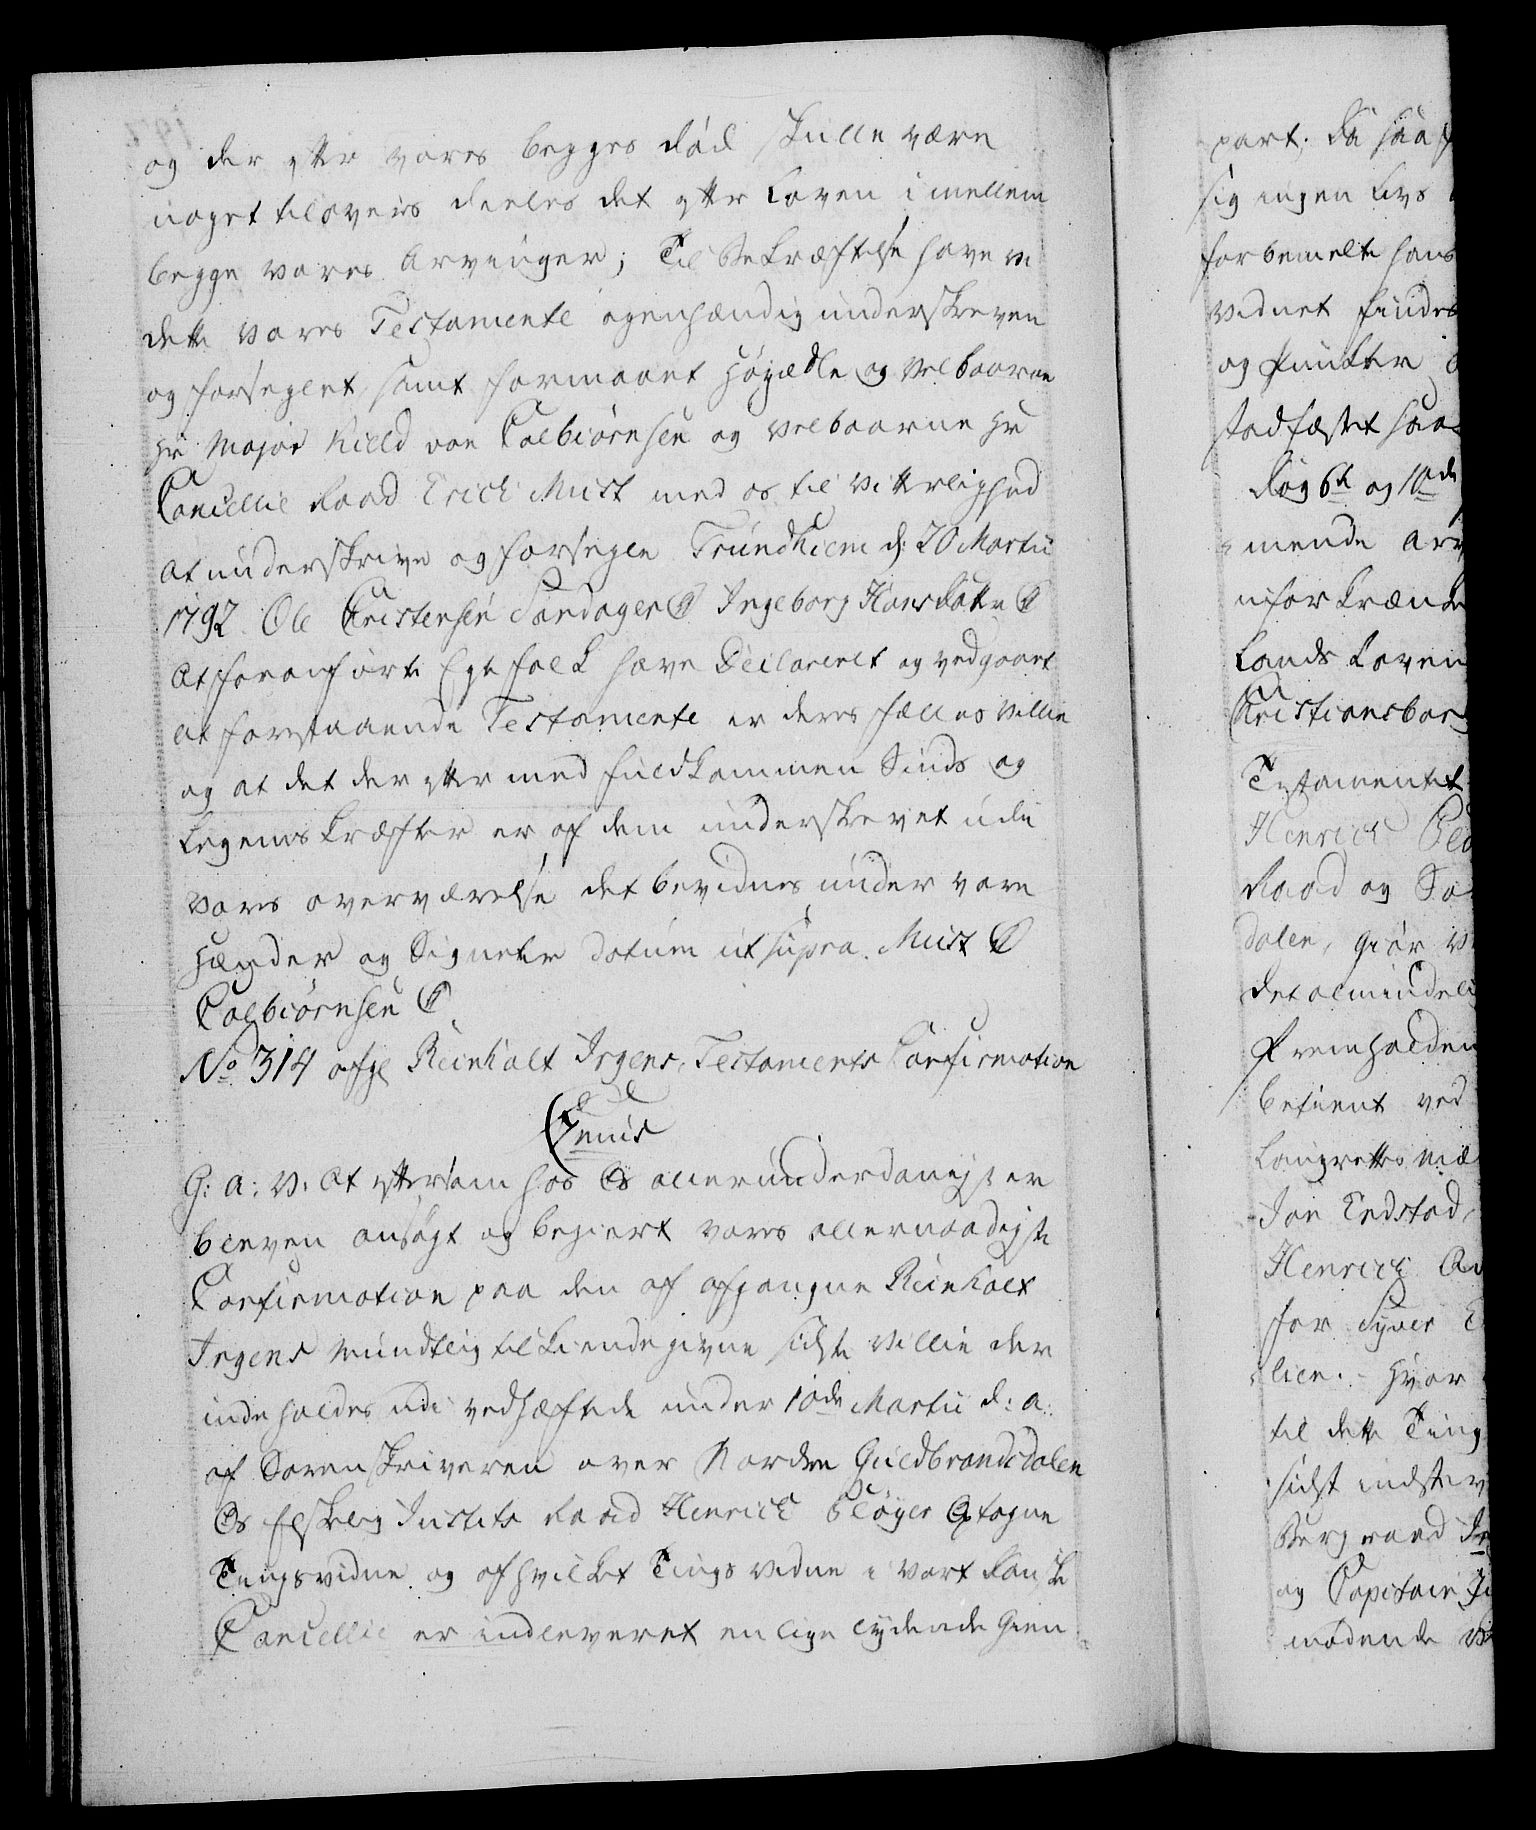 og der efter vores begges död skulle være
noget tilovers deeles det efter Loven imellem
begge vores Arvinger; Til Bekræftelse have vi
dette vores Testamente egenhændig underskreven
og forseglet samt formaaet Höyædle og Velbaarne
Hr Major Kield von Colbiörnsen og Velbaarne Hr
Cancellie Raad Erich Must med os til Vitterlighed
at underskrive og forsegle Trundhiem d: 20 Martii
1792. Ole Christensen Sandager Ingeborg Hansdatter
At foranförte Egtefolk have Declareret og vedgaaet
at forestaaende Testamente er deres fælles Villie
og at det derefter med fuldkommen Sinds og
Legems Kræfter er af dem underskrevet udi
vores overværelse det bevidnes under vore
Hænder og Signeter datum ut supra. Must
Colbiörnsen
No 314 afgl Reinholt Irgens Testaments Confirmation
G: A: V. At eftersom hos Os allerunderdanigst er
bleven ansögt og begiert vores allernaadigste
Confirmation paa den af afgangne Reinholt
Irgens mundtlig tilkiendegivne sidste Villie der
indeholdes udi vedhæftede under 10de Martii d: a:
af Sorenskriveren over Norder Guldbrandsdalen
Os elskelig Justits Raad Henrich Plöyer optagne
Tingsvidne og af hvilket Tings Vidne i Vort Danske
Cancellie er indleveret en lige lydende Gien
part. Da saa
sig ingen Livs
forbemelte hans
Vidnet findes
og Puncter
stadfæstet saa
Dog 6te og 10de
mende Arv
uforkrænke
Lands Loven
Christiansborg
Testamentet
Henrich
Raad og So
dalen, Giör V
det almindeli
fremholden
betient ved
Laugrettes Mæ
Jon Endstad,
Henrich
for Syver
lien. Hvor
til dette Ting
sidst indstev
Bergraad
og Capitain
mödende